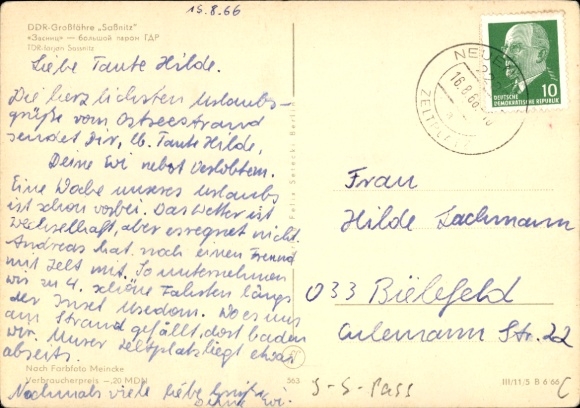 15.8.66
DDR-Großfähre „Saßnitz"
«Засниц» — большой паром ГДР
TDR-larjan Sassnitz
Liebe Tante Hilde.
Die herzlichsten Urlaubs-
grüße vom Ostseestrand
sendet Dir, lb. Tante Hilde,
Deine Evi nebst Verlobtem.
Eine Woche unseres Urlaubs
ist schon vorbei. Das Wetter ist
wechselhaft, aber es regnet nicht.
Andreas hat noch einen Freund
mit Zelt mit. So unternehmen
wir zu 4. schöne Fahrten längs
der Insel Usedom. Wo es uns
am Strand gefällt, dort baden
wir. Unser Zeltplatz liegt etwas
abseits.
Nochmals viele liebe Grüße
Deine Evi.
Nach Farbfoto Meincke
Verbraucherpreis —.20 MDN
563
Felix Setecki Berlin
III/11/5 B 6/66
16.8.66
10
DEUTSCHE
DEMOKRATISCHE REPUBLIK
Frau
Hilde Lachmann
033 Bielefeld
Culemann Str. 22
J-S-Pass
C